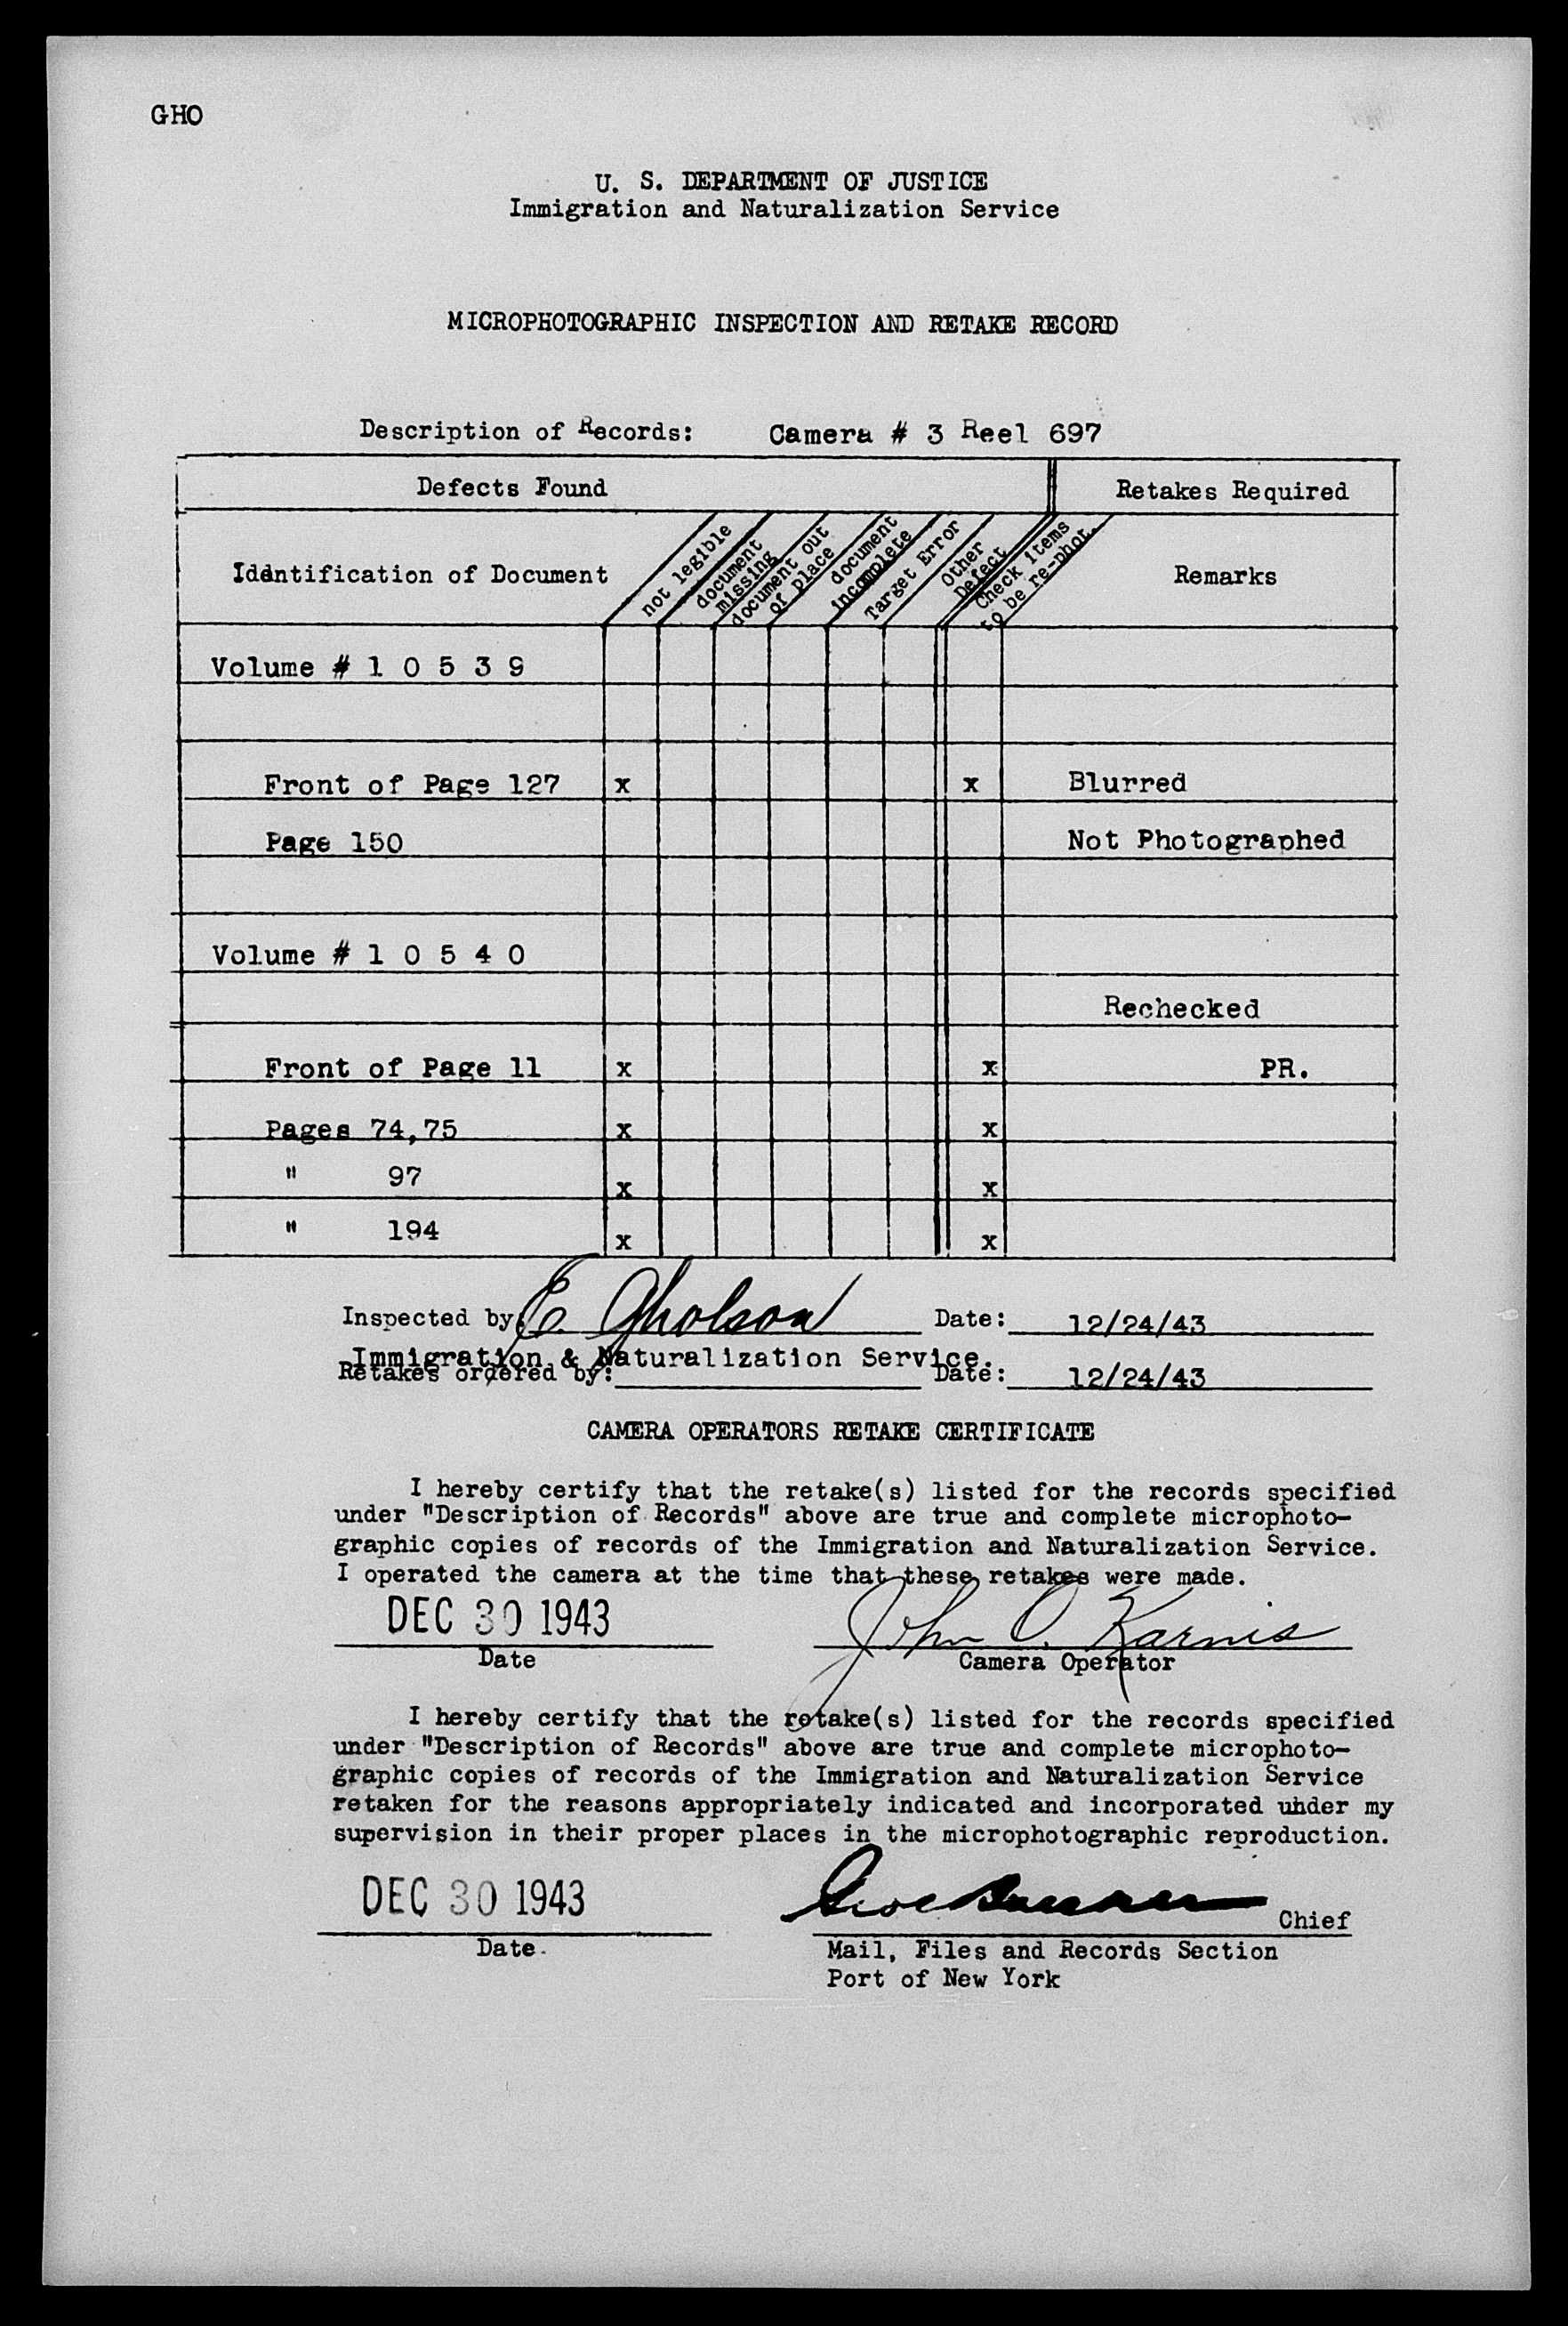 GHO
U. S. DEPARTMENT OF JUSTICE
Immigration and Naturalization Service
MICROPHOTOGRAPHIC INSPECTION AND RETAKE RECORD
Description of Records: Camera # 3 Reel 697
Defects Found Retakes Required
Identification of Document
not legible
document missing
document out of place
document incomplete
Target Error
Other Defect
Check items to be re-phot.
Remarks
Volume # 1 0 5 3 9
Front of Page 127 x x Blurred
Page 150 Not Photographed
Volume # 1 0 5 4 0
Rechecked
Front of Page 11 x x PR.
Pages 74,75 x x
" 97 x x
" 194 x x
Inspected by: E. Gholson Date: 12/24/43
Immigration & Naturalization Service.
Retakes ordered by: Date: 12/24/43
CAMERA OPERATORS RETAKE CERTIFICATE
I hereby certify that the retake(s) listed for the records specified
under "Description of Records" above are true and complete microphoto-
graphic copies of records of the Immigration and Naturalization Service.
I operated the camera at the time that these retakes were made.
DEC 30 1943 John O. Karnis
Date Camera Operator
I hereby certify that the retake(s) listed for the records specified
under "Description of Records" above are true and complete microphoto-
graphic copies of records of the Immigration and Naturalization Service
retaken for the reasons appropriately indicated and incorporated uhder my
supervision in their proper places in the microphotographic reproduction.
DEC 30 1943 Chief
Date. Mail, Files and Records Section
Port of New York